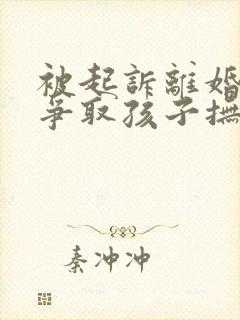 被起訴離婚
爭取孩子撫
秦沖沖